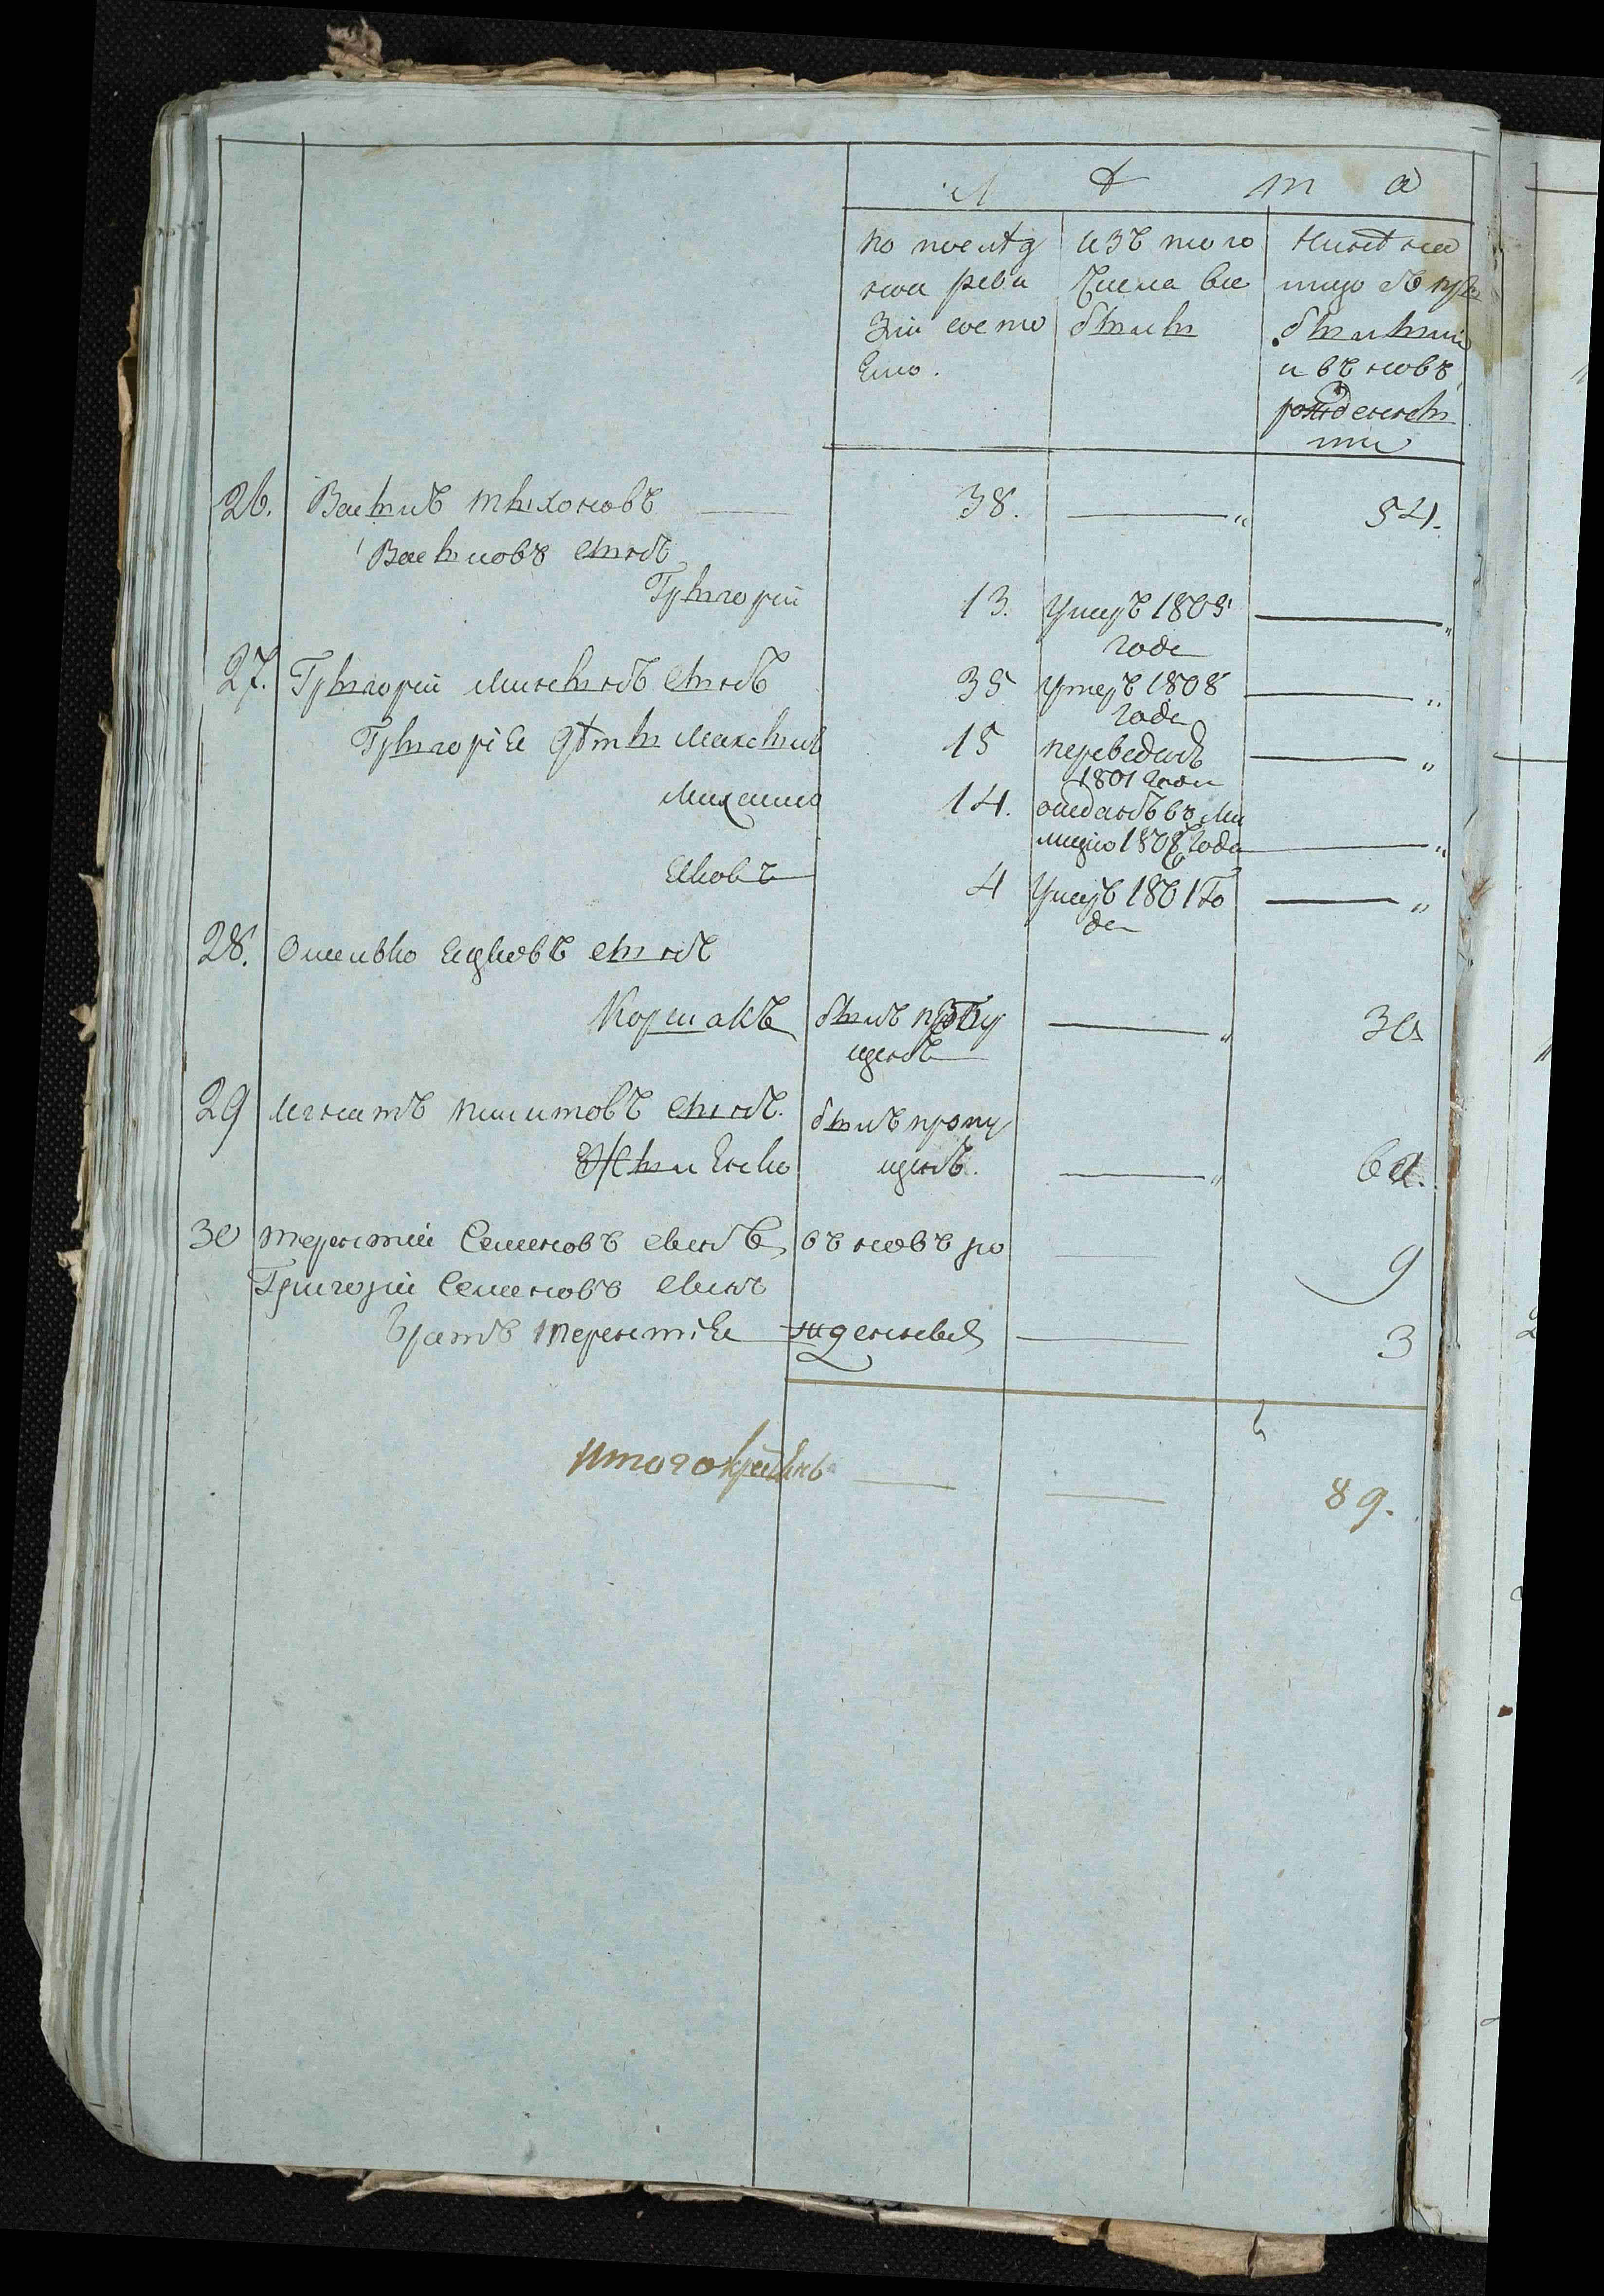 Л ѣ т а
по послѣд
ней реви
зіи состо
яло.
изъ того
числа вы
были
Нынѣ на
лицо съ при
былыми
и въ новъ
рожденны
ми
26. Васылъ Тыхоновъ 38. — „ 54.
Васыловъ сынъ
Грыгорій 13. Умеръ 1805 — „
года
27. Грыгорій Микытовъ сынъ 35 умеръ 1808 — „
года
Грыгорія дѣты Максымъ 15 переведенъ — „
1801 года
Михаило 14. отданъ въ Ми
лицію 1806 года — „
Яковъ 4 Умеръ 1801 го — „
да
28. Омелько Яцковъ сынъ
Коршакъ былъ пропу — „ 30
щенъ
29 Игнатъ Пилиповъ сынъ былъ пропу
щенъ. — „ 60.
30 Терентій Семеновъ сынъ въ новъ ро — 9
Григорій Семеновъ сынъ
братъ Терентія жденныя — 3
Итого — — 89.